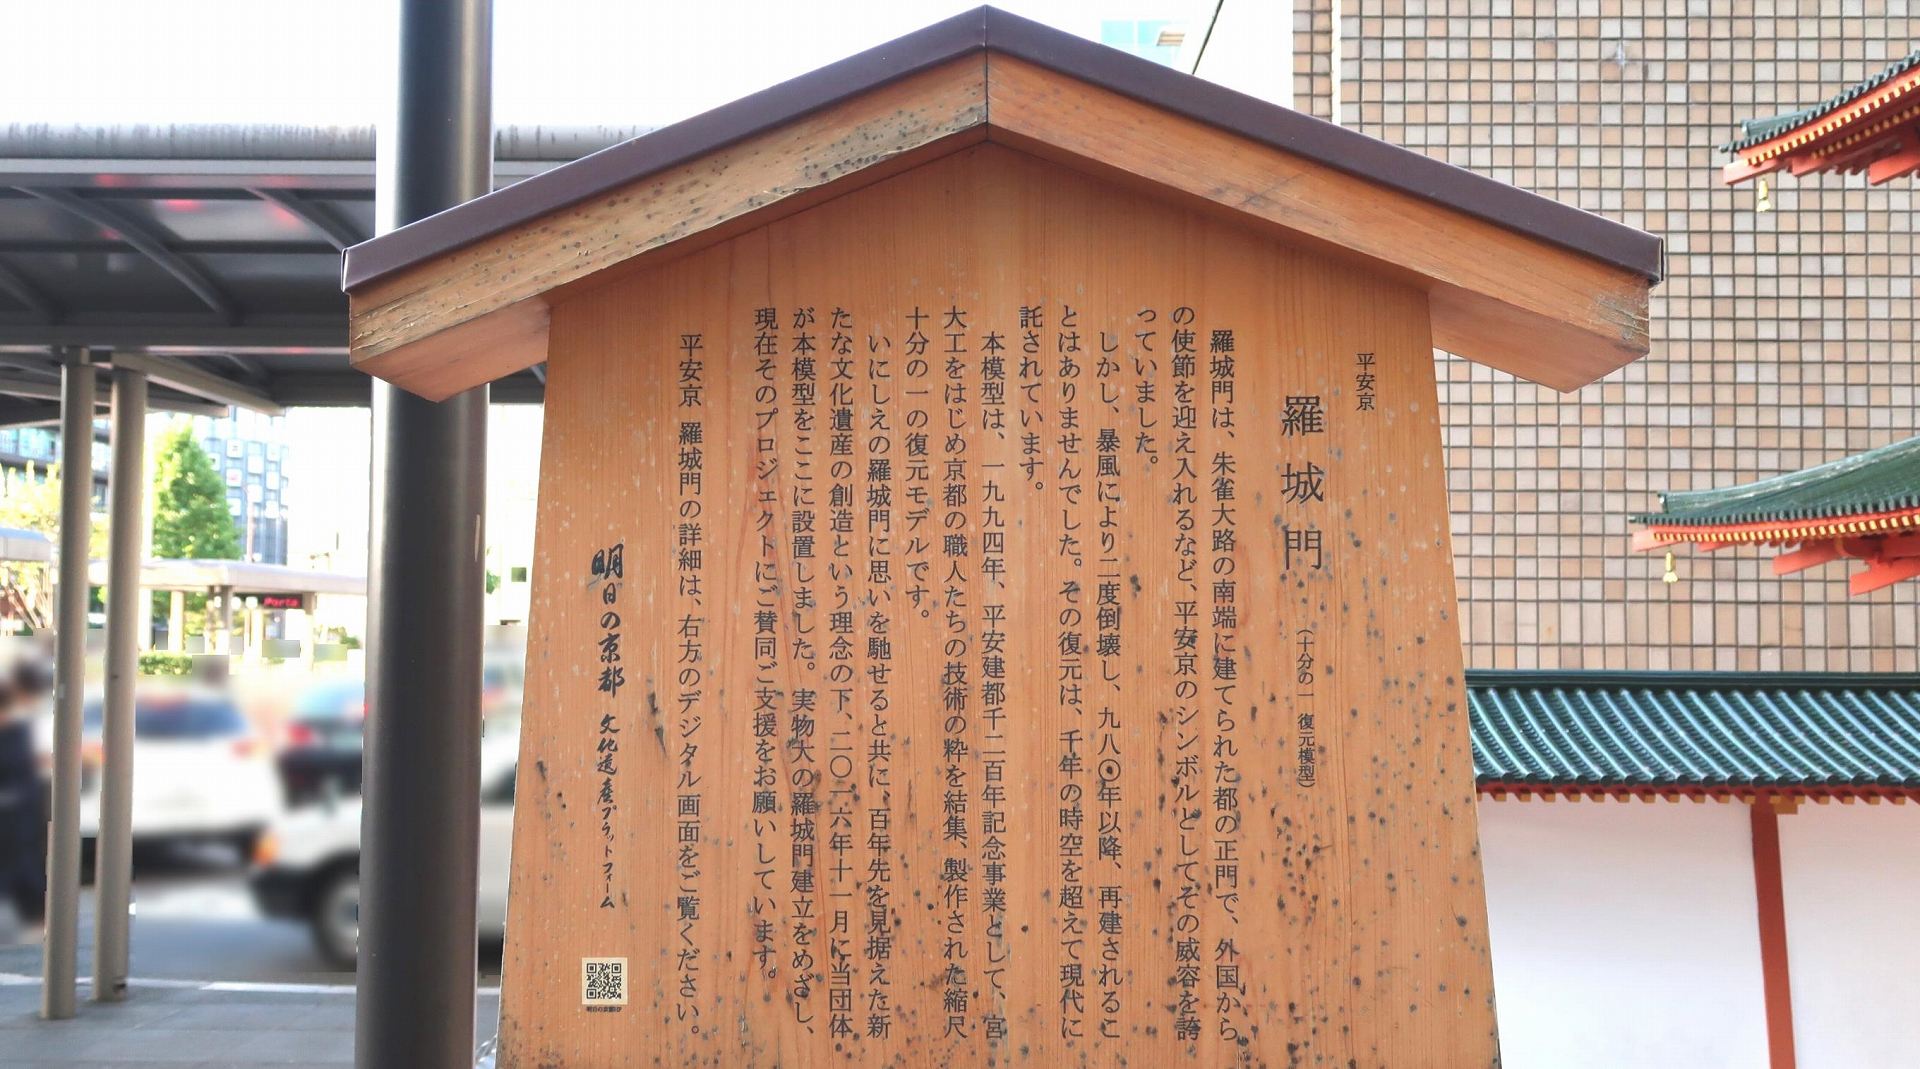 平安京
羅城門 (十分の一 復元模型)
羅城門は、朱雀大路の南端に建てられた都の正門で、外国から
の使節を迎え入れるなど、平安京のシンボルとしてその威容を誇
っていました。
しかし、暴風により二度倒壊し、九八〇年以降、再建されるこ
とはありませんでした。その復元は、千年の時空を超えて現代に
託されています。
本模型は、一九九四年、平安建都千二百年記念事業として、宮
大工をはじめ京都の職人たちの技術の粋を結集、製作された縮尺
十分の一の復元モデルです。
いにしえの羅城門に思いを馳せると共に、百年先を見据えた新
たな文化遺産の創造という理念の下、二〇一六年十一月に当団体
が本模型をここに設置しました。実物大の羅城門建立をめざし、
現在そのプロジェクトにご賛同ご支援をお願いしています。
平安京 羅城門の詳細は、右方のデジタル画面をご覧ください。
明日の京都 文化遺産プラットフォーム
Porta